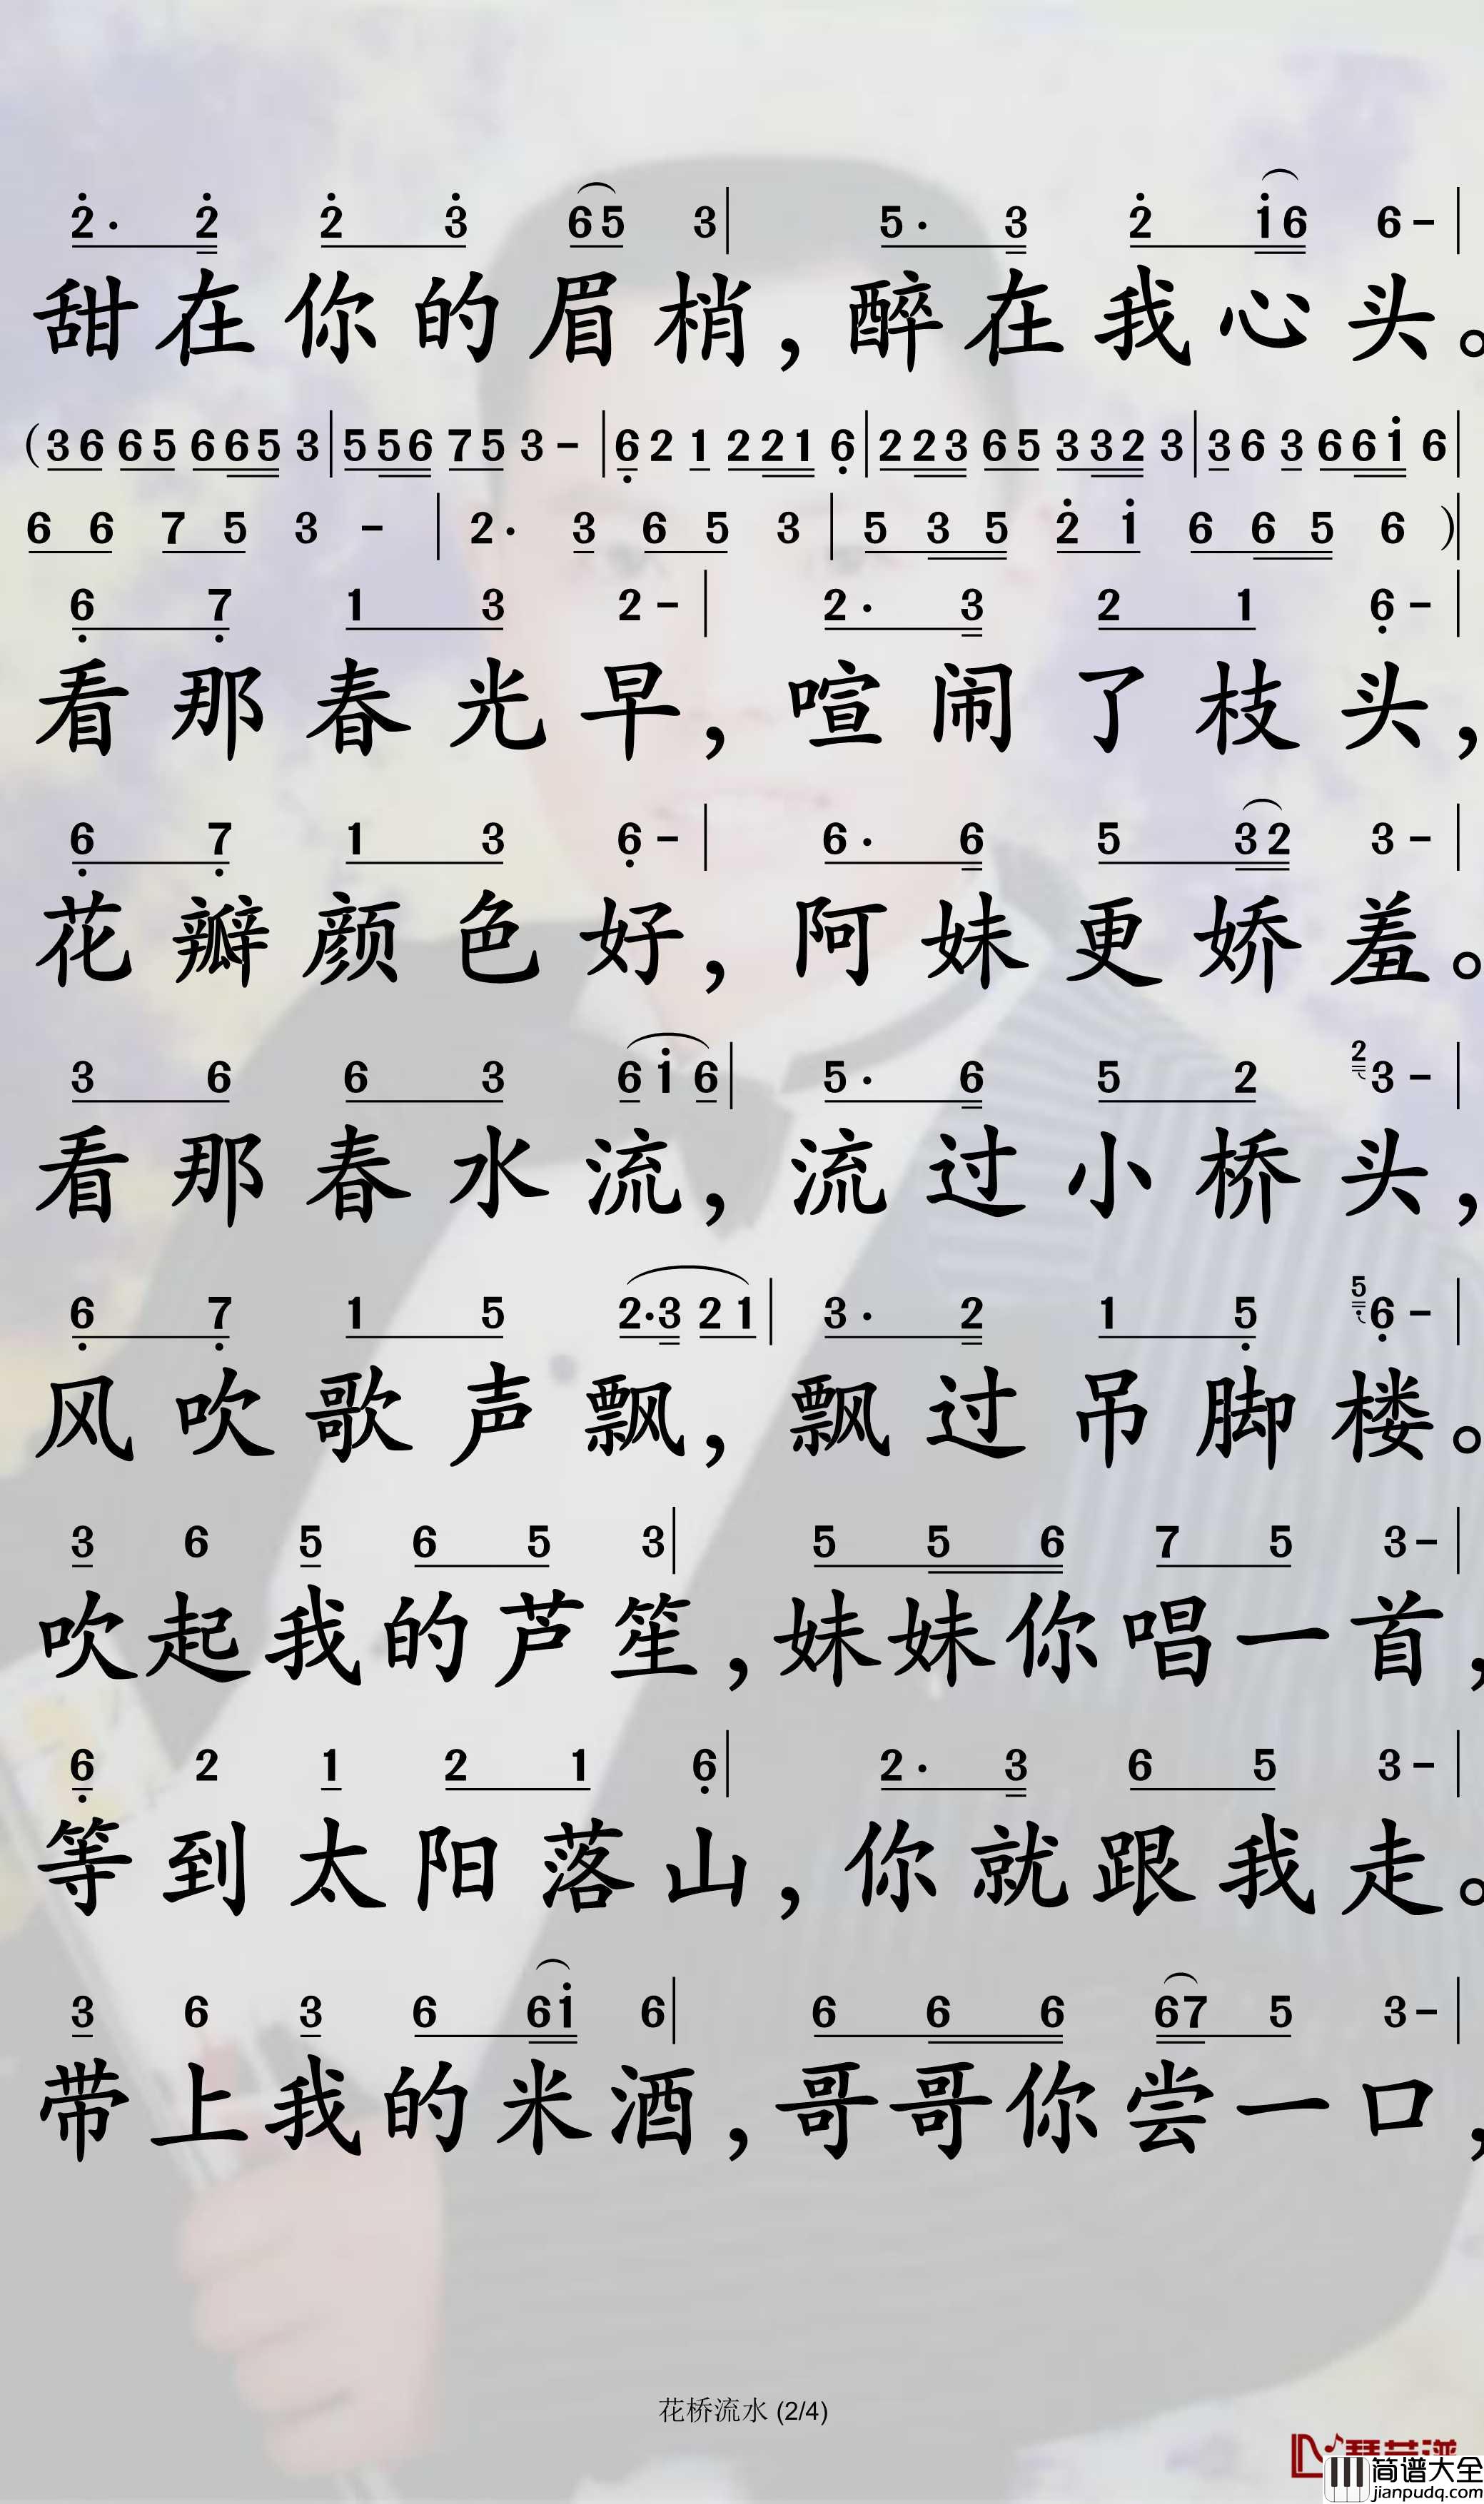 2· 2 2 3 65 3| 5· 3 2 16 6-|
甜在你的眉梢，醉在我心头。
(36 65 665 3|556 75 3-|6 2 1 221 6|223 65 332 3|3 6 3 661 6|
6 6 7 5 3 -|2· 3 6 5 3|5 3 5 2 1 6 6 5 6 )|
6 7 1 3 2-| 2· 3 2 1 6-|
看那春光早，喧闹了枝头，
6 7 1 3 6-| 6· 6 5 32 3-|
花瓣颜色好，阿妹更娇羞。
3 6 6 3 616| 5· 6 5 2 23-|
看那春水流，流过小桥头，
6 7 1 5 2·3 21| 3· 2 1 5 56-|
风吹歌声飘，飘过吊脚楼。
3 6 5 6 5 3| 5 5 6 7 5 3-|
吹起我的芦笙，妹妹你唱一首，
6 2 1 2 1 6| 2· 3 6 5 3-|
等到太阳落山，你就跟我走。
3 6 3 6 61 6| 6 6 6 67 5 3-|
带上我的米酒，哥哥你尝一口，
花桥流水 (2/4)
简谱大全
jianpudq.com